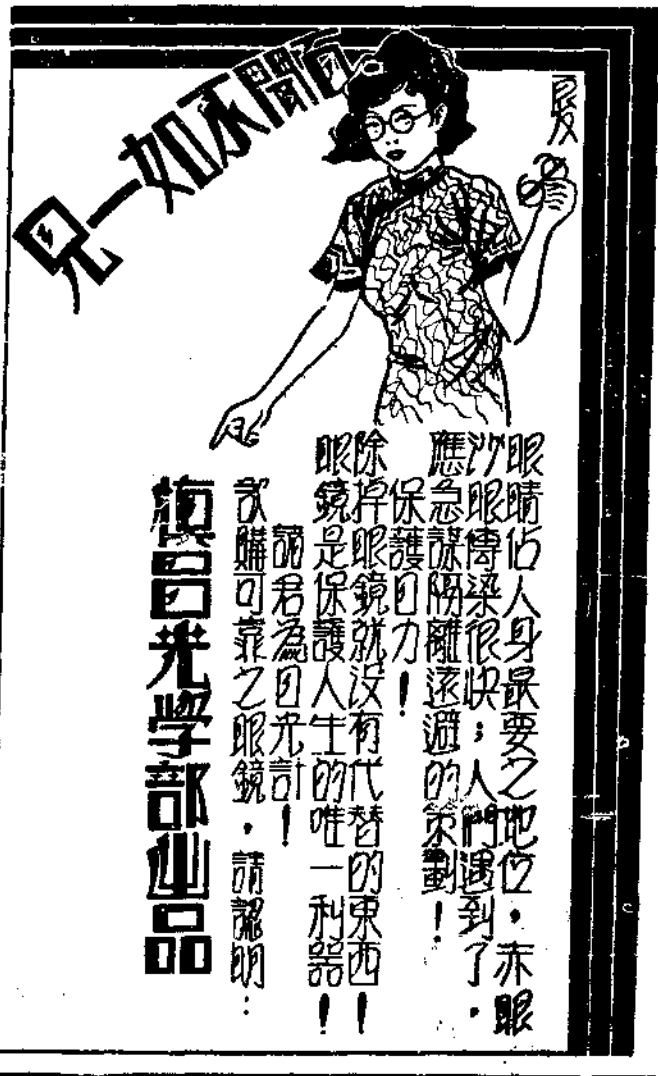 百聞不如一見
眼睛佔人身最要之地位，赤眼
沙眼傳染很快；人們遇到了，
應急謀隔離遠避的策劃！
保護目力！
除掉眼鏡就没有代替的東西！
眼鏡是保護人生的唯一利器！
諸君為目光計！
欲購可靠之眼鏡，請認明：
光学部出品